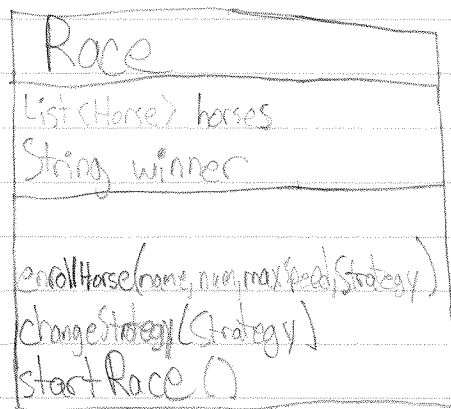 Race
List<Horse> horses
String winner
enrollHorse(name, num, maxSpeed, Strategy)
changeStrategy(Strategy)
startRace()